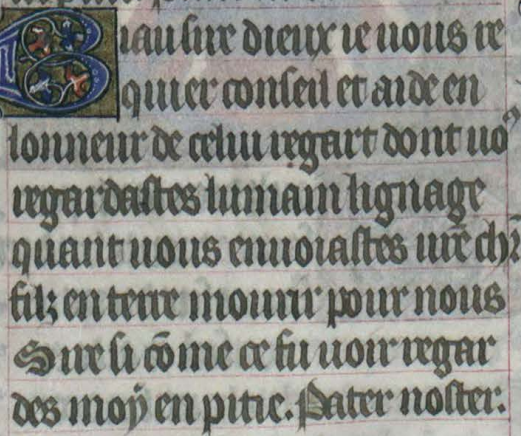 Biau sire dieux ie uous re
quier conseil et aide en
lonneur de celui regart dont uo⁹
regardastes lumain lignage
quant uous enuoiastes ur̄e chr̄
filz en terre mourir pour nous
Sire si cōme ce fu uoir regar
des moy en pitie. Pater noster.